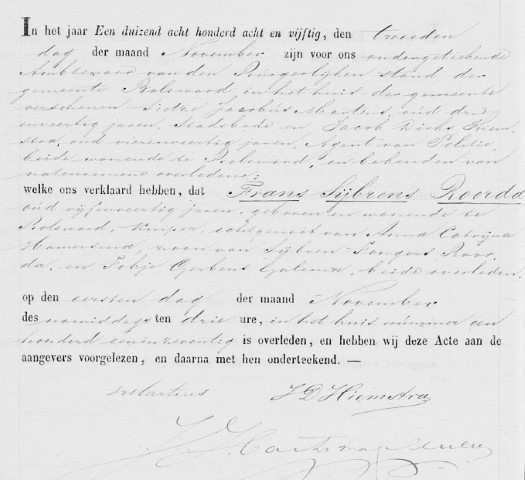 In het jaar Een duizend acht honderd acht en vijftig, den tweeden
dag der maand November zijn voor ons ondergeteekende
Ambtenaar van den Burgerlijken stand der
gemeente Bolsward, in het huis der gemeente
verschenen Sietze Jacobus Martens, oud drie
enveertig jaren, Stadsbode en, Jacob Dirks Hiem
stra, oud vierenveertig jaren, Agent van Politie,
beide wonende te Bolsward, en bekenden van
natenoemen overledene;
welke ons verklaard hebben, dat Frans Sijbrens Roorda
oud vijfenveertig jaren, geboren en wonende te
Bolsward, echtgenoot van Anna Catrijna
en van Sijbren Roor
da, en beide overleden.
op den eersten dag der maand November
des namiddags ten drie ure, in het huis nummer een
honderd is overleden, en hebben wij deze Acte aan de
aangevers voorgelezen, en daarna met hen onderteekend. —
Martens J D Hiemstra